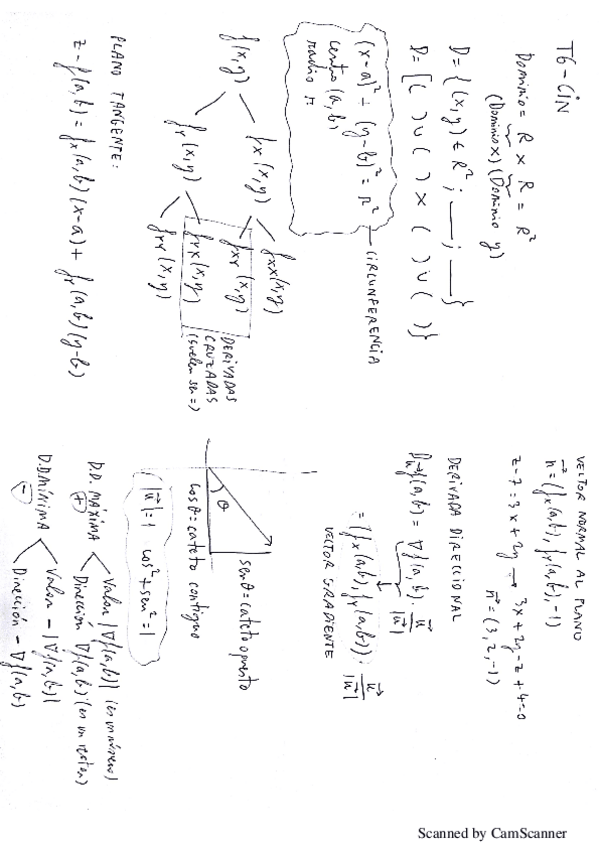 T6-CIN
Dominio = R x R = R²
(Dominio x) (Dominio y)
D = {(x,y) ∈ R² ; ___ ; ___}
D = [( ) ∪ ( ) × ( ) ∪ ( )}
(x-a)² + (y-b)² = r²
CIRCUNFERENCIA
centro (a,b)
radio r
f(x,y)
fx(x,y)
fy(x,y)
fxx(x,y)
fxy(x,y)
fyx(x,y)
fyy(x,y)
DERIVADAS
CRUZADAS
(suelen ser =)
PLANO TANGENTE:
z - f(a,b) = fx(a,b)(x-a) + fy(a,b)(y-b)
VECTOR NORMAL AL PLANO
n⃗ = (fx(a,b), fy(a,b), -1)
z-7 = 3x+2y → 3x+2y-z+4=0
n⃗ = (3,2,-1)
DERIVADA DIRECCIONAL
Du⃗f(a,b) = ∇f(a,b) · u⃗/|u⃗|
= (fx(a,b), fy(a,b)) · u⃗/|u⃗|
VECTOR GRADIENTE
θ
sen θ = cateto opuesto
cos θ = cateto contiguo
|u⃗| = 1 cos² + sen² = 1
D.D. MÁXIMA
+
Valor |∇f(a,b)| (es un número)
Dirección ∇f(a,b) (es un vector)
D.D MÍNIMA
-
Valor -|∇f(a,b)|
Dirección -∇f(a,b)
Scanned by CamScanner